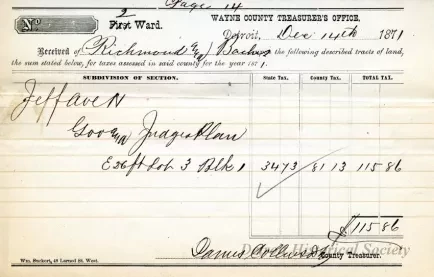 Page 14
No.
2
First Ward.
WAYNE COUNTY TREASURER'S OFFICE,
Detroit, Dec 14th 1871
Received of Richmond & Backus the following described tracts of land,
the sum stated below, for taxes assessed in said county for the year 1871.
SUBDIVISION OF SECTION. STATE TAX. COUNTY TAX. TOTAL TAX.
Jeff Ave N
Gov & Judges Plan
E 26 ft Lot 3 Blk 1 34 73 81 13 115 86
$115 86
Historical Society
James County Treasurer.
Wm. Burkert, 49 Larned St. West.